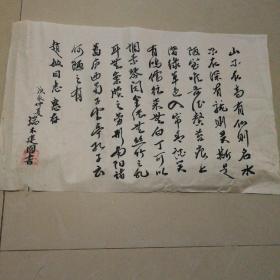 山不在高有仙则名水
不在深有龙则灵斯是
陋室唯吾德馨苔痕上
阶绿草色入帘青谈笑
有鸿儒往来无白丁可以
调素琴阅金经无丝竹之乱
耳无案牍之劳形南阳诸
葛庐西蜀子云亭孔子云
何陋之有
敏同志惠存